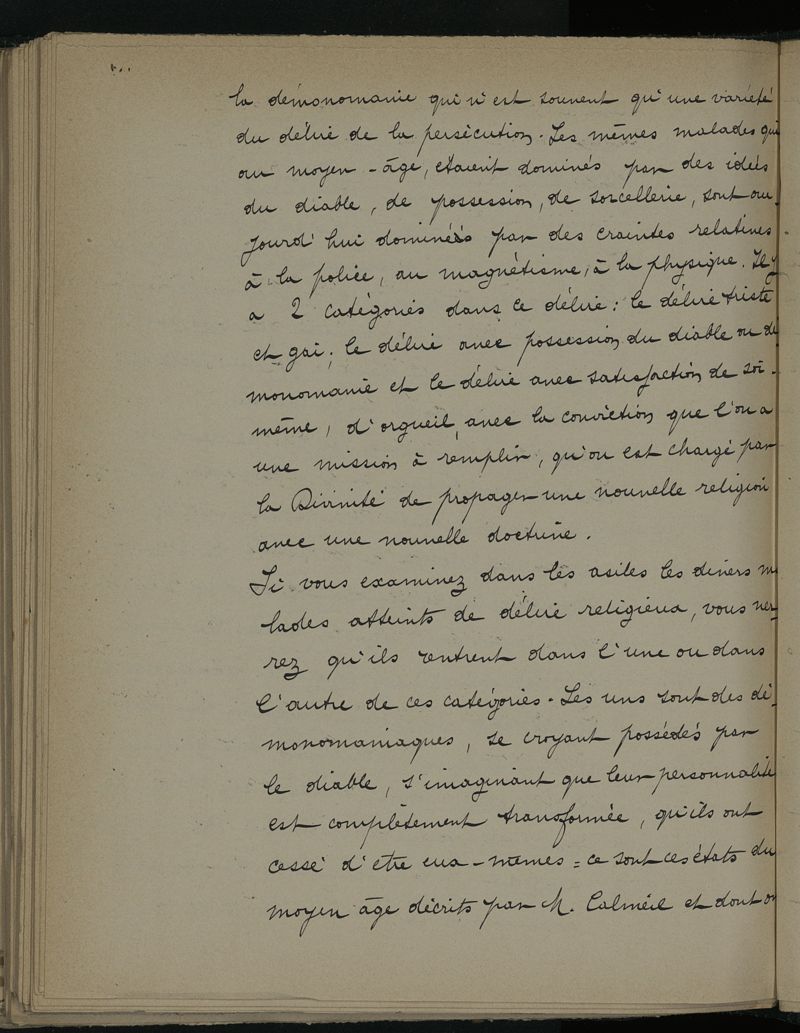 la démonomanie qui n'est souvent qu'une variété
du délire de la persécution. Les mêmes malades qui
au moyen-âge, étaient dominés par des idées
du diable, de possession, de sorcellerie, sont au-
jourd'hui dominés par des craintes relatives
à la police, au magnétisme, à la physique. Il y
a 2 catégories dans ce délire : le délire triste
et gai ; le délire avec possession du diable ou dé
monomanie et le délire avec satisfaction de soi-
même, d'orgueil, avec la conviction que l'on a
une mission à remplir, qu'on est chargé par
la Divinité de propager une nouvelle religion
avec une nouvelle doctrine.
Si vous examinez dans les asiles les divers ma
lades atteints de délire religieux, vous ver-
rez qu'ils rentrent dans l'une ou dans
l'autre de ces catégories. Les uns sont des dé-
monomaniaques, se croyant possédés par
le diable, s'imaginant que leur personnalité
est complètement transformée, qu'ils ont
cessé d'etre eux-memes = ce sont ces états du
moyen âge décrits par M. Calmeil et dont on